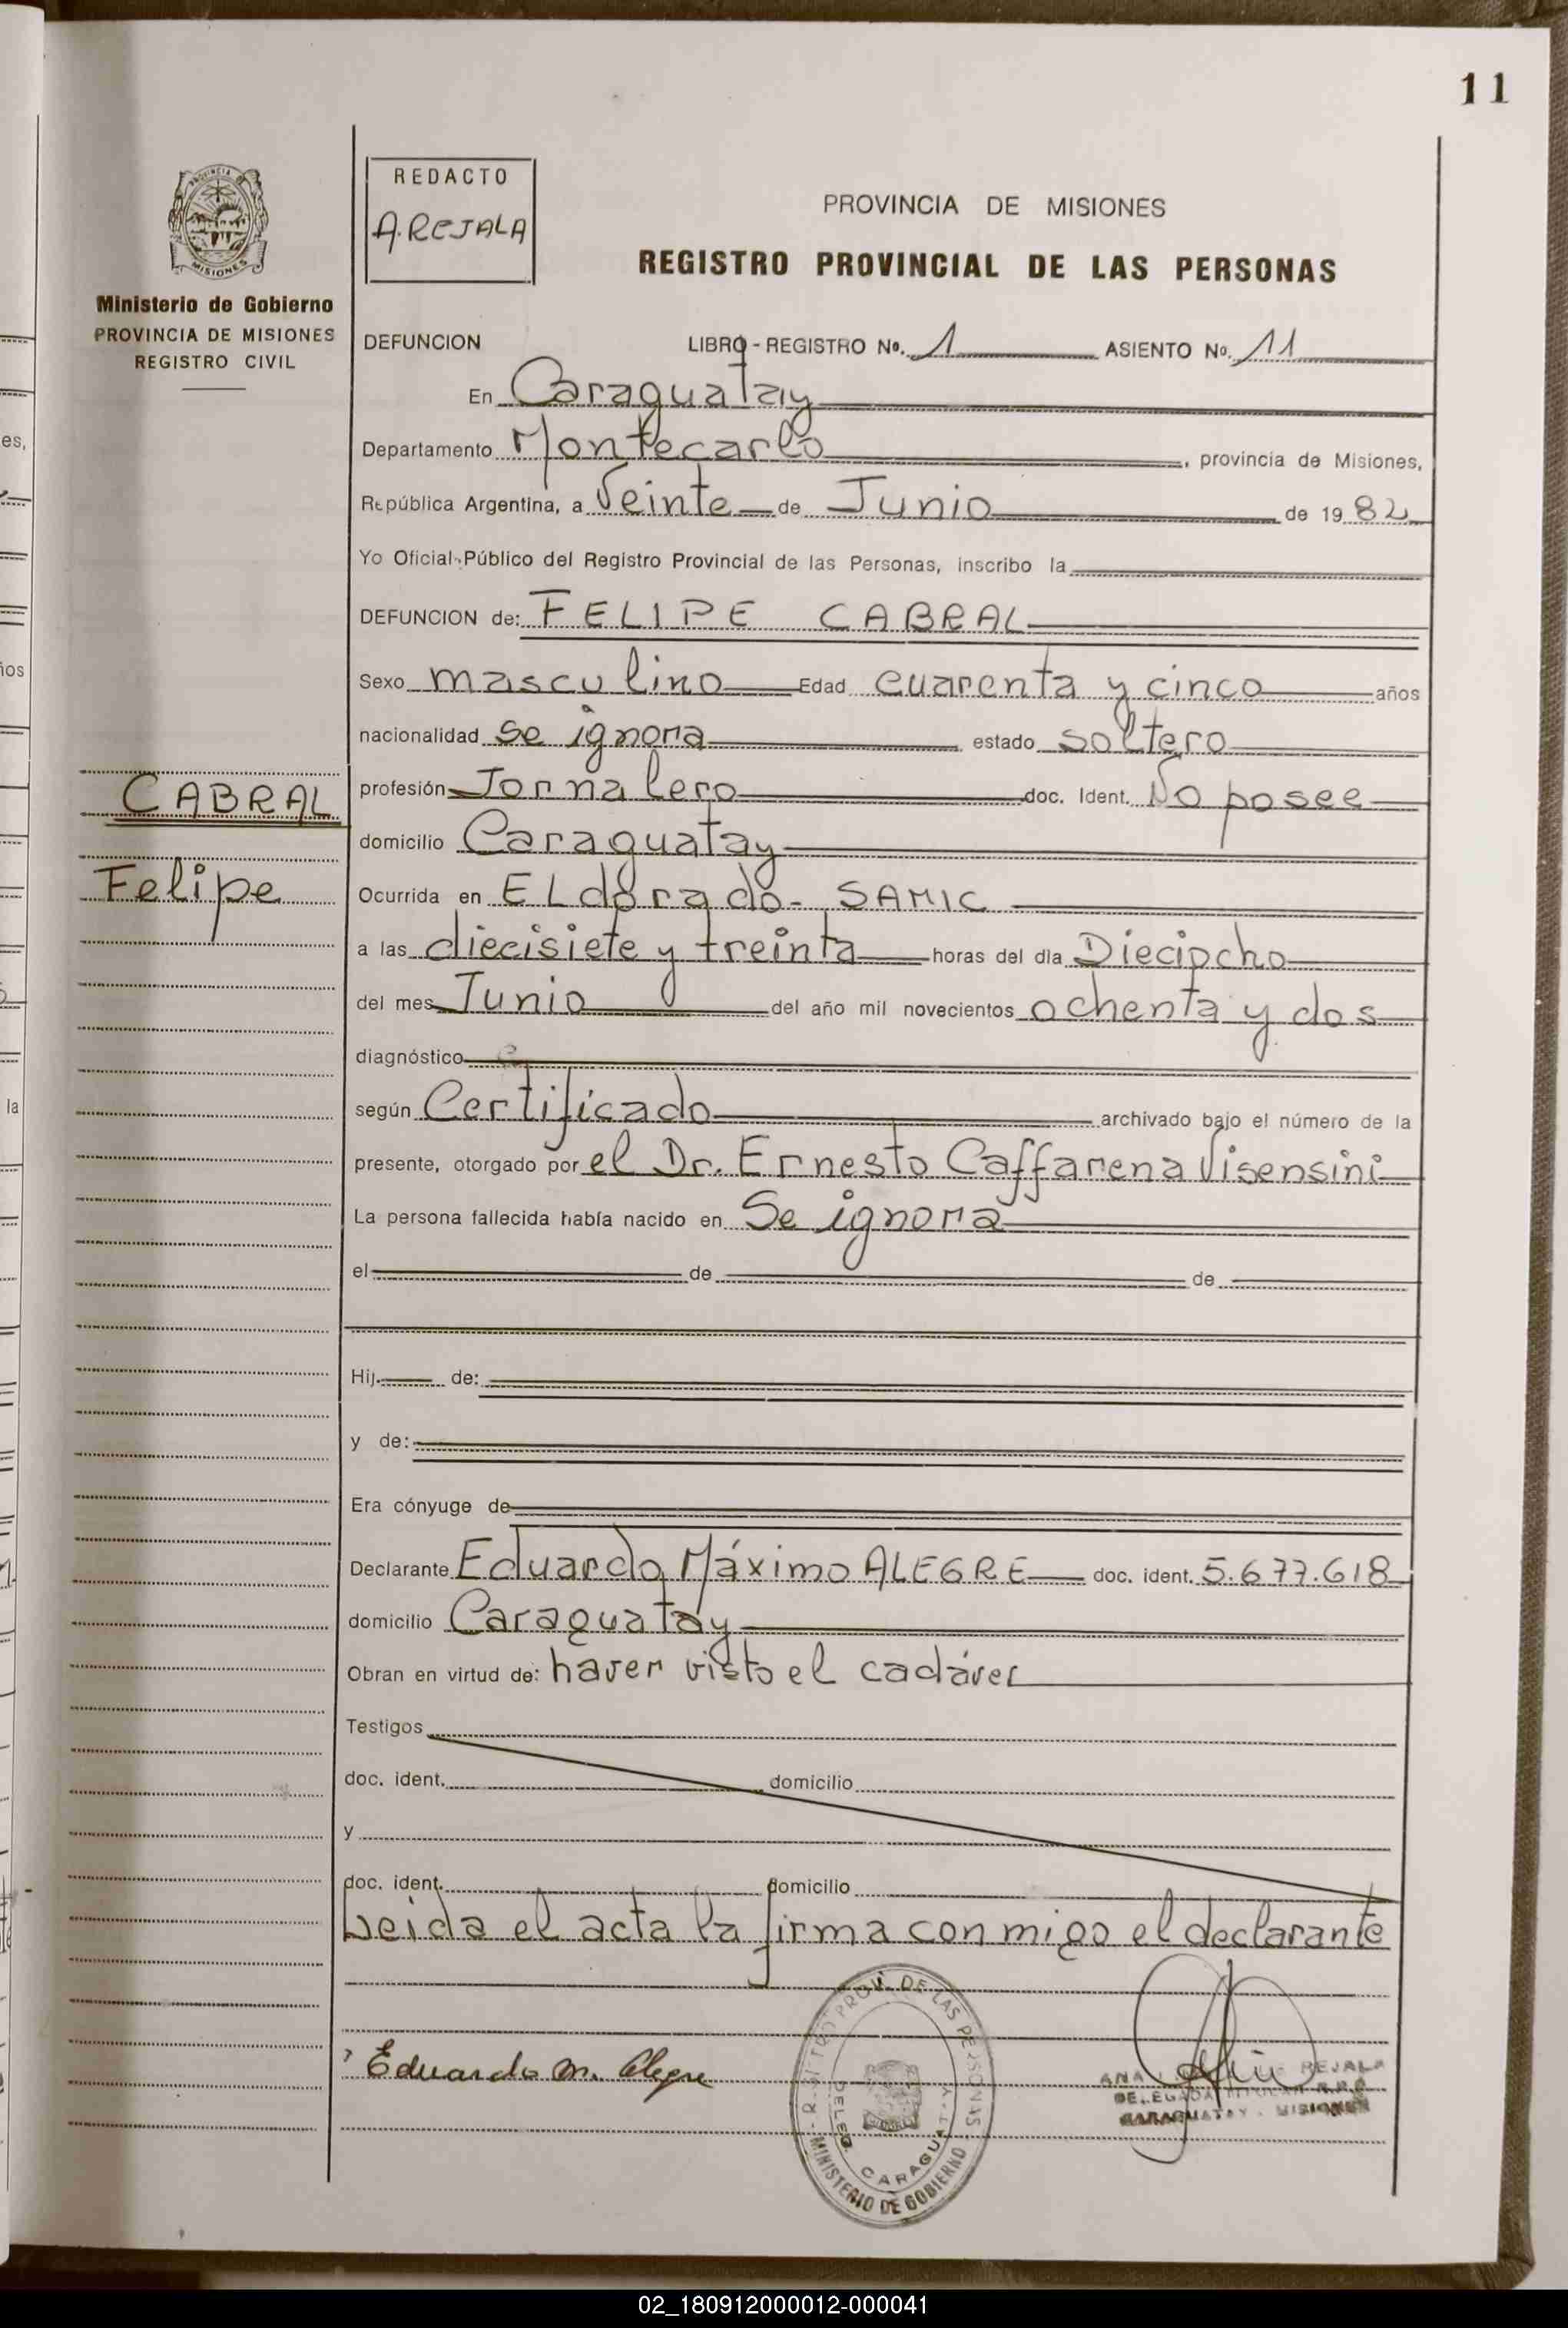 11
PROVINCIA DE
MISIONES
Ministerio de Gobierno
PROVINCIA DE MISIONES
REGISTRO CIVIL
REDACTO
A. REJALA
PROVINCIA DE MISIONES
REGISTRO PROVINCIAL DE LAS PERSONAS
DEFUNCION LIBRO - REGISTRO Nº. 1 ASIENTO Nº. 11
En Caraguatay
Departamento Montecarlo, provincia de Misiones,
República Argentina, a Veinte de Junio de 1982
Yo Oficial Público del Registro Provincial de las Personas, inscribo la
DEFUNCION de: FELIPE CABRAL
Sexo masculino Edad cuarenta y cinco años
nacionalidad se ignora estado soltero
CABRAL
profesión Jornalero doc. Ident. No posee
domicilio Caraguatay
Felipe
Ocurrida en ELdorado - SAMIC
a las diecisiete y treinta horas del día Dieciocho
del mes Junio del año mil novecientos ochenta y dos
diagnóstico
según Certificado archivado bajo el número de la
presente, otorgado por el Dr. Ernesto Caffarena Visensini
La persona fallecida había nacido en Se ignora
el de de
Hij de:
y de:
Era cónyuge de
Declarante Eduardo Máximo ALEGRE doc. ident. 5.677.618
domicilio Caraguatay
Obran en virtud de: haver visto el cadáver
Testigos
doc. ident. domicilio
y
doc. ident. domicilio
Leida el acta la firma con migo el declarante
Eduardo M. Alegre
PROV. DE LAS PERSONAS
DELEG. CARAGUATAY
MINISTERIO DE GOBIERNO
ANA REJALA
DELEGADA R.P.P.
CARAGUATAY - MISIONES
02_180912000012-000041